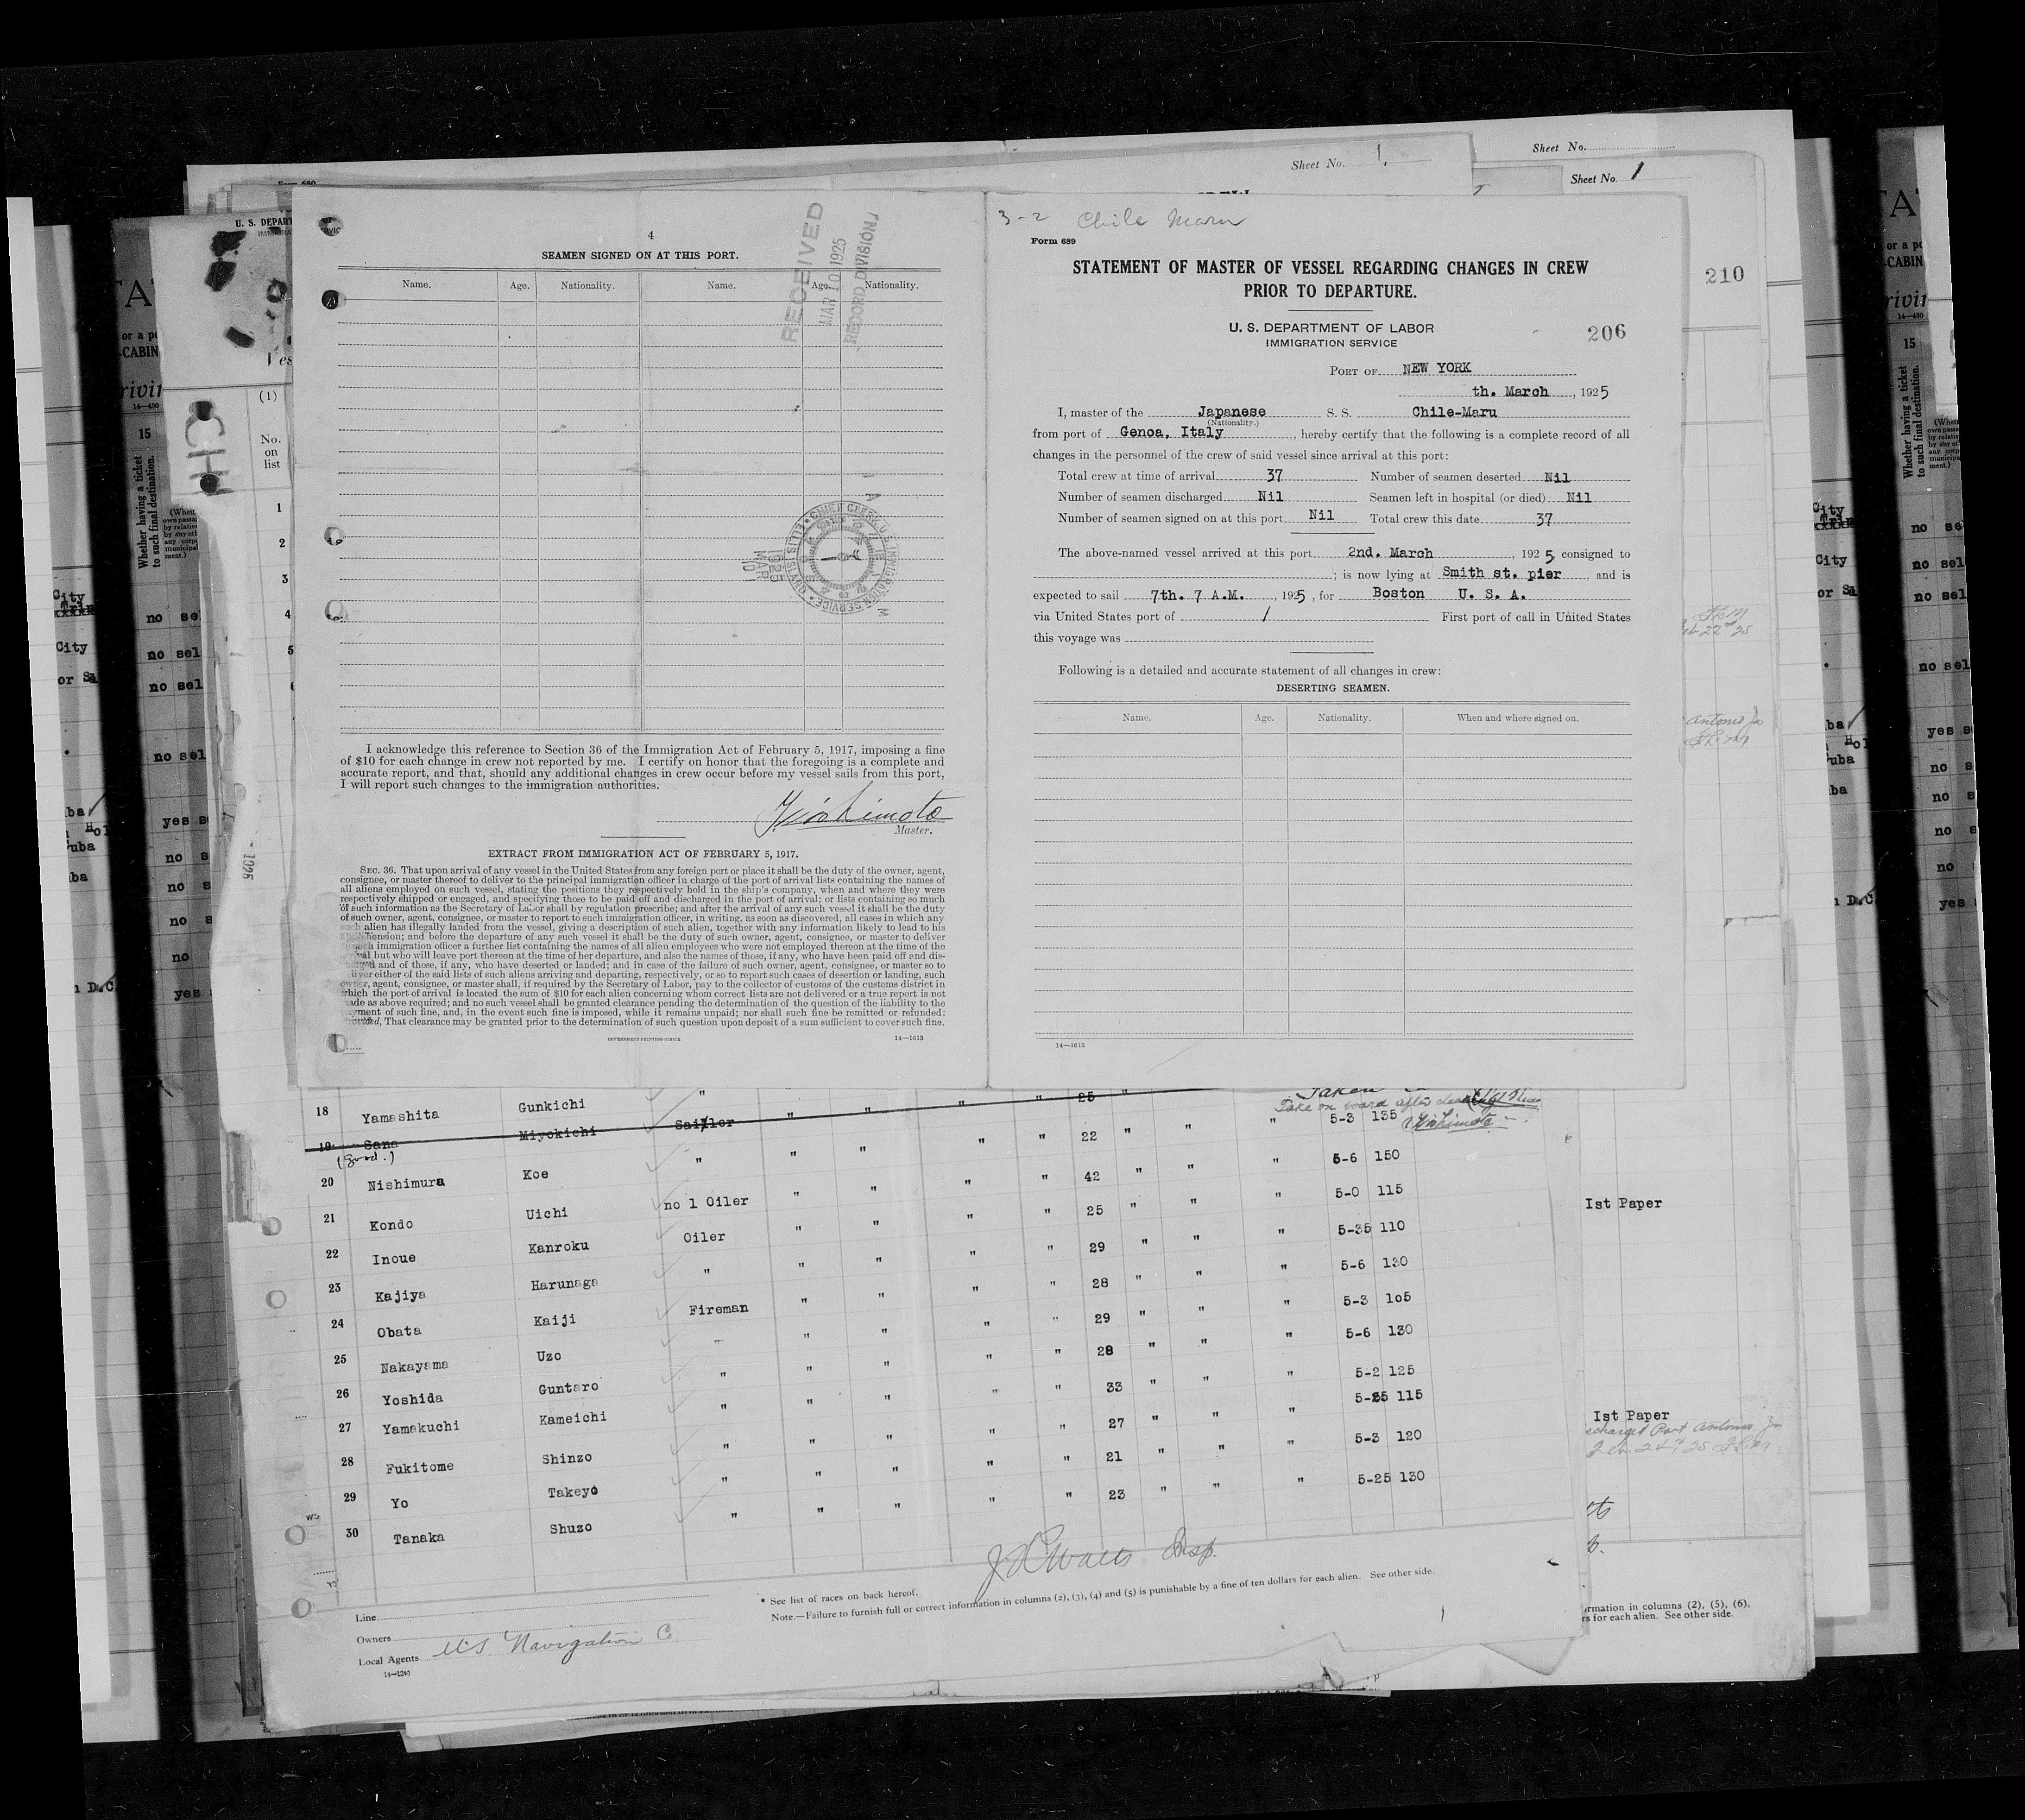 Sheet No. 1.
Sheet No.
Sheet No. 1
210
4
SEAMEN SIGNED ON AT THIS PORT.
Name. Age. Nationality. Name. Age. Nationality.
RECEIVED
MAR 10 1925
RECORD DIVISION
CHIEF CLERK U.S. IMMIGRATION SERVICE
ELLIS ISLAND
1925
MAR
10
I acknowledge this reference to Section 36 of the Immigration Act of February 5, 1917, imposing a fine
of $10 for each change in crew not reported by me. I certify on honor that the foregoing is a complete and
accurate report, and that, should any additional changes in crew occur before my vessel sails from this port,
I will report such changes to the immigration authorities.
Master.
EXTRACT FROM IMMIGRATION ACT OF FEBRUARY 5, 1917.
SEC. 36. That upon arrival of any vessel in the United States from any foreign port or place it shall be the duty of the owner, agent,
consignee, or master thereof to deliver to the principal immigration officer in charge of the port of arrival lists containing the names of
all aliens employed on such vessel, stating the positions they respectively hold in the ship's company, when and where they were
respectively shipped or engaged, and specifying those to be paid off and discharged in the port of arrival; or lists containing so much
of such information as the Secretary of Labor shall by regulation prescribe; and after the arrival of any such vessel it shall be the duty
of such owner, agent, consignee, or master to report to such immigration officer, in writing, as soon as discovered, all cases in which any
such alien has illegally landed from the vessel, giving a description of such alien, together with any information likely to lead to his
and before the departure of any such vessel it shall be the duty of such owner, agent, consignee, or master to deliver
immigration officer a further list containing the names of all alien employees who were not employed thereon at the time of the
but who will leave port thereon at the time of her departure, and also the names of those, if any, who have been paid off and dis-
and of those, if any, who have deserted or landed; and in case of the failure of such owner, agent, consignee, or master so to
either of the said lists of such aliens arriving and departing, respectively, or so to report such cases of desertion or landing, such
owner, agent, consignee, or master shall, if required by the Secretary of Labor, pay to the collector of customs of the customs district in
which the port of arrival is located the sum of $10 for each alien concerning whom correct lists are not delivered or a true report is not
made as above required; and no such vessel shall be granted clearance pending the determination of the question of the liability to the
payment of such fine, and, in the event such fine is imposed, while it remains unpaid; nor shall such fine be remitted or refunded:
Provided, That clearance may be granted prior to the determination of such question upon deposit of a sum sufficient to cover such fine.
GOVERNMENT PRINTING OFFICE 14—1613
3-2 Chile Maru
Form 689
STATEMENT OF MASTER OF VESSEL REGARDING CHANGES IN CREW
PRIOR TO DEPARTURE.
U. S. DEPARTMENT OF LABOR
IMMIGRATION SERVICE
206
PORT OF NEW YORK
th. March, 1925
I, master of the Japanese S. S. Chile-Maru
(Nationality.)
from port of Genoa, Italy, hereby certify that the following is a complete record of all
changes in the personnel of the crew of said vessel since arrival at this port:
Total crew at time of arrival 37 Number of seamen deserted Nil
Number of seamen discharged Nil Seamen left in hospital (or died) Nil
Number of seamen signed on at this port Nil Total crew this date 37
The above-named vessel arrived at this port 2nd. March, 1925, consigned to
; is now lying at Smith st. pier, and is
expected to sail 7th. 7 A.M., 1925, for Boston U. S. A.
via United States port of / First port of call in United States
this voyage was
Following is a detailed and accurate statement of all changes in crew:
DESERTING SEAMEN.
Name. Age. Nationality. When and where signed on.
14—1613
18 Yamashita Gunkichi " " " " " 25 "
19 Sana Miyokichi Sailor " " " " 22 " " " 5-3 135
20 Nishimura Koe " " " " " 42 " " " 5-6 150
21 Kondo Uichi no 1 Oiler " " " " 25 " " " 5-0 115
22 Inoue Kanroku Oiler " " " " 29 " " " 5-35 110
23 Kajiya Harunaga " " " " " 28 " " " 5-6 130
24 Obata Kaiji Fireman " " " " 29 " " " 5-3 105
25 Nakayama Uzo " " " " 28 " " " 5-6 130
26 Yoshida Guntaro " " " " " 33 " " " 5-2 125
27 Yamakuchi Kameichi " " " " " 27 " " " 5-25 115
28 Fukitome Shinzo " " " " " 21 " " " 5-3 120
29 Yo Takeyo " " " " " 23 " " " 5-25 130
30 Tanaka Shuzo " "
Ist Paper
Ist Paper
* See list of races on back hereof.
Note.—Failure to furnish full or correct information in columns (2), (3), (4) and (5) is punishable by a fine of ten dollars for each alien. See other side.
Line
Owners
Local Agents U.S. Navigation Co
14—1240